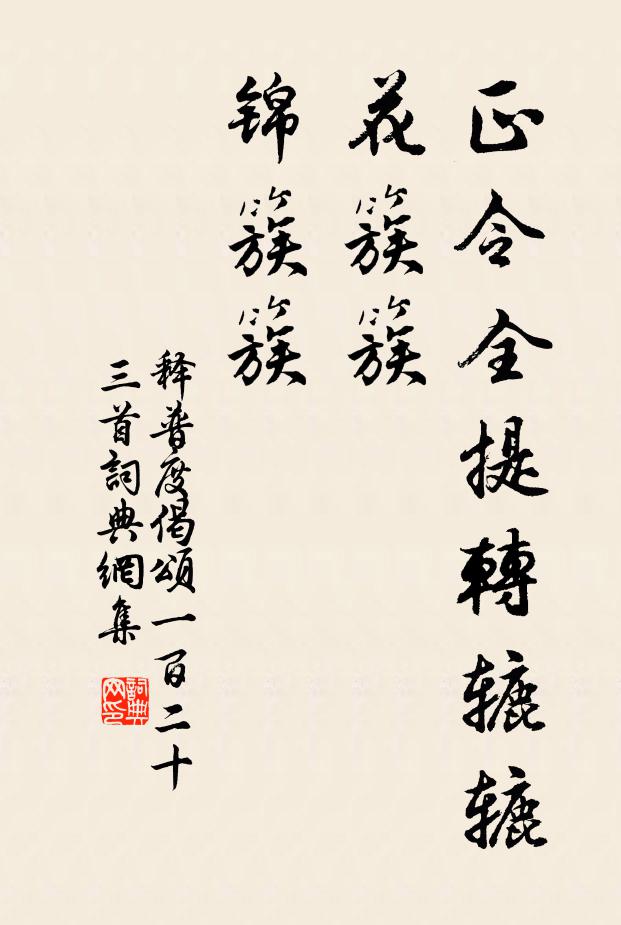 正令全提轉辘辘
花簇簇
锦簇簇
释普度偈頌一百二十
三首詞典網集
詞典網印